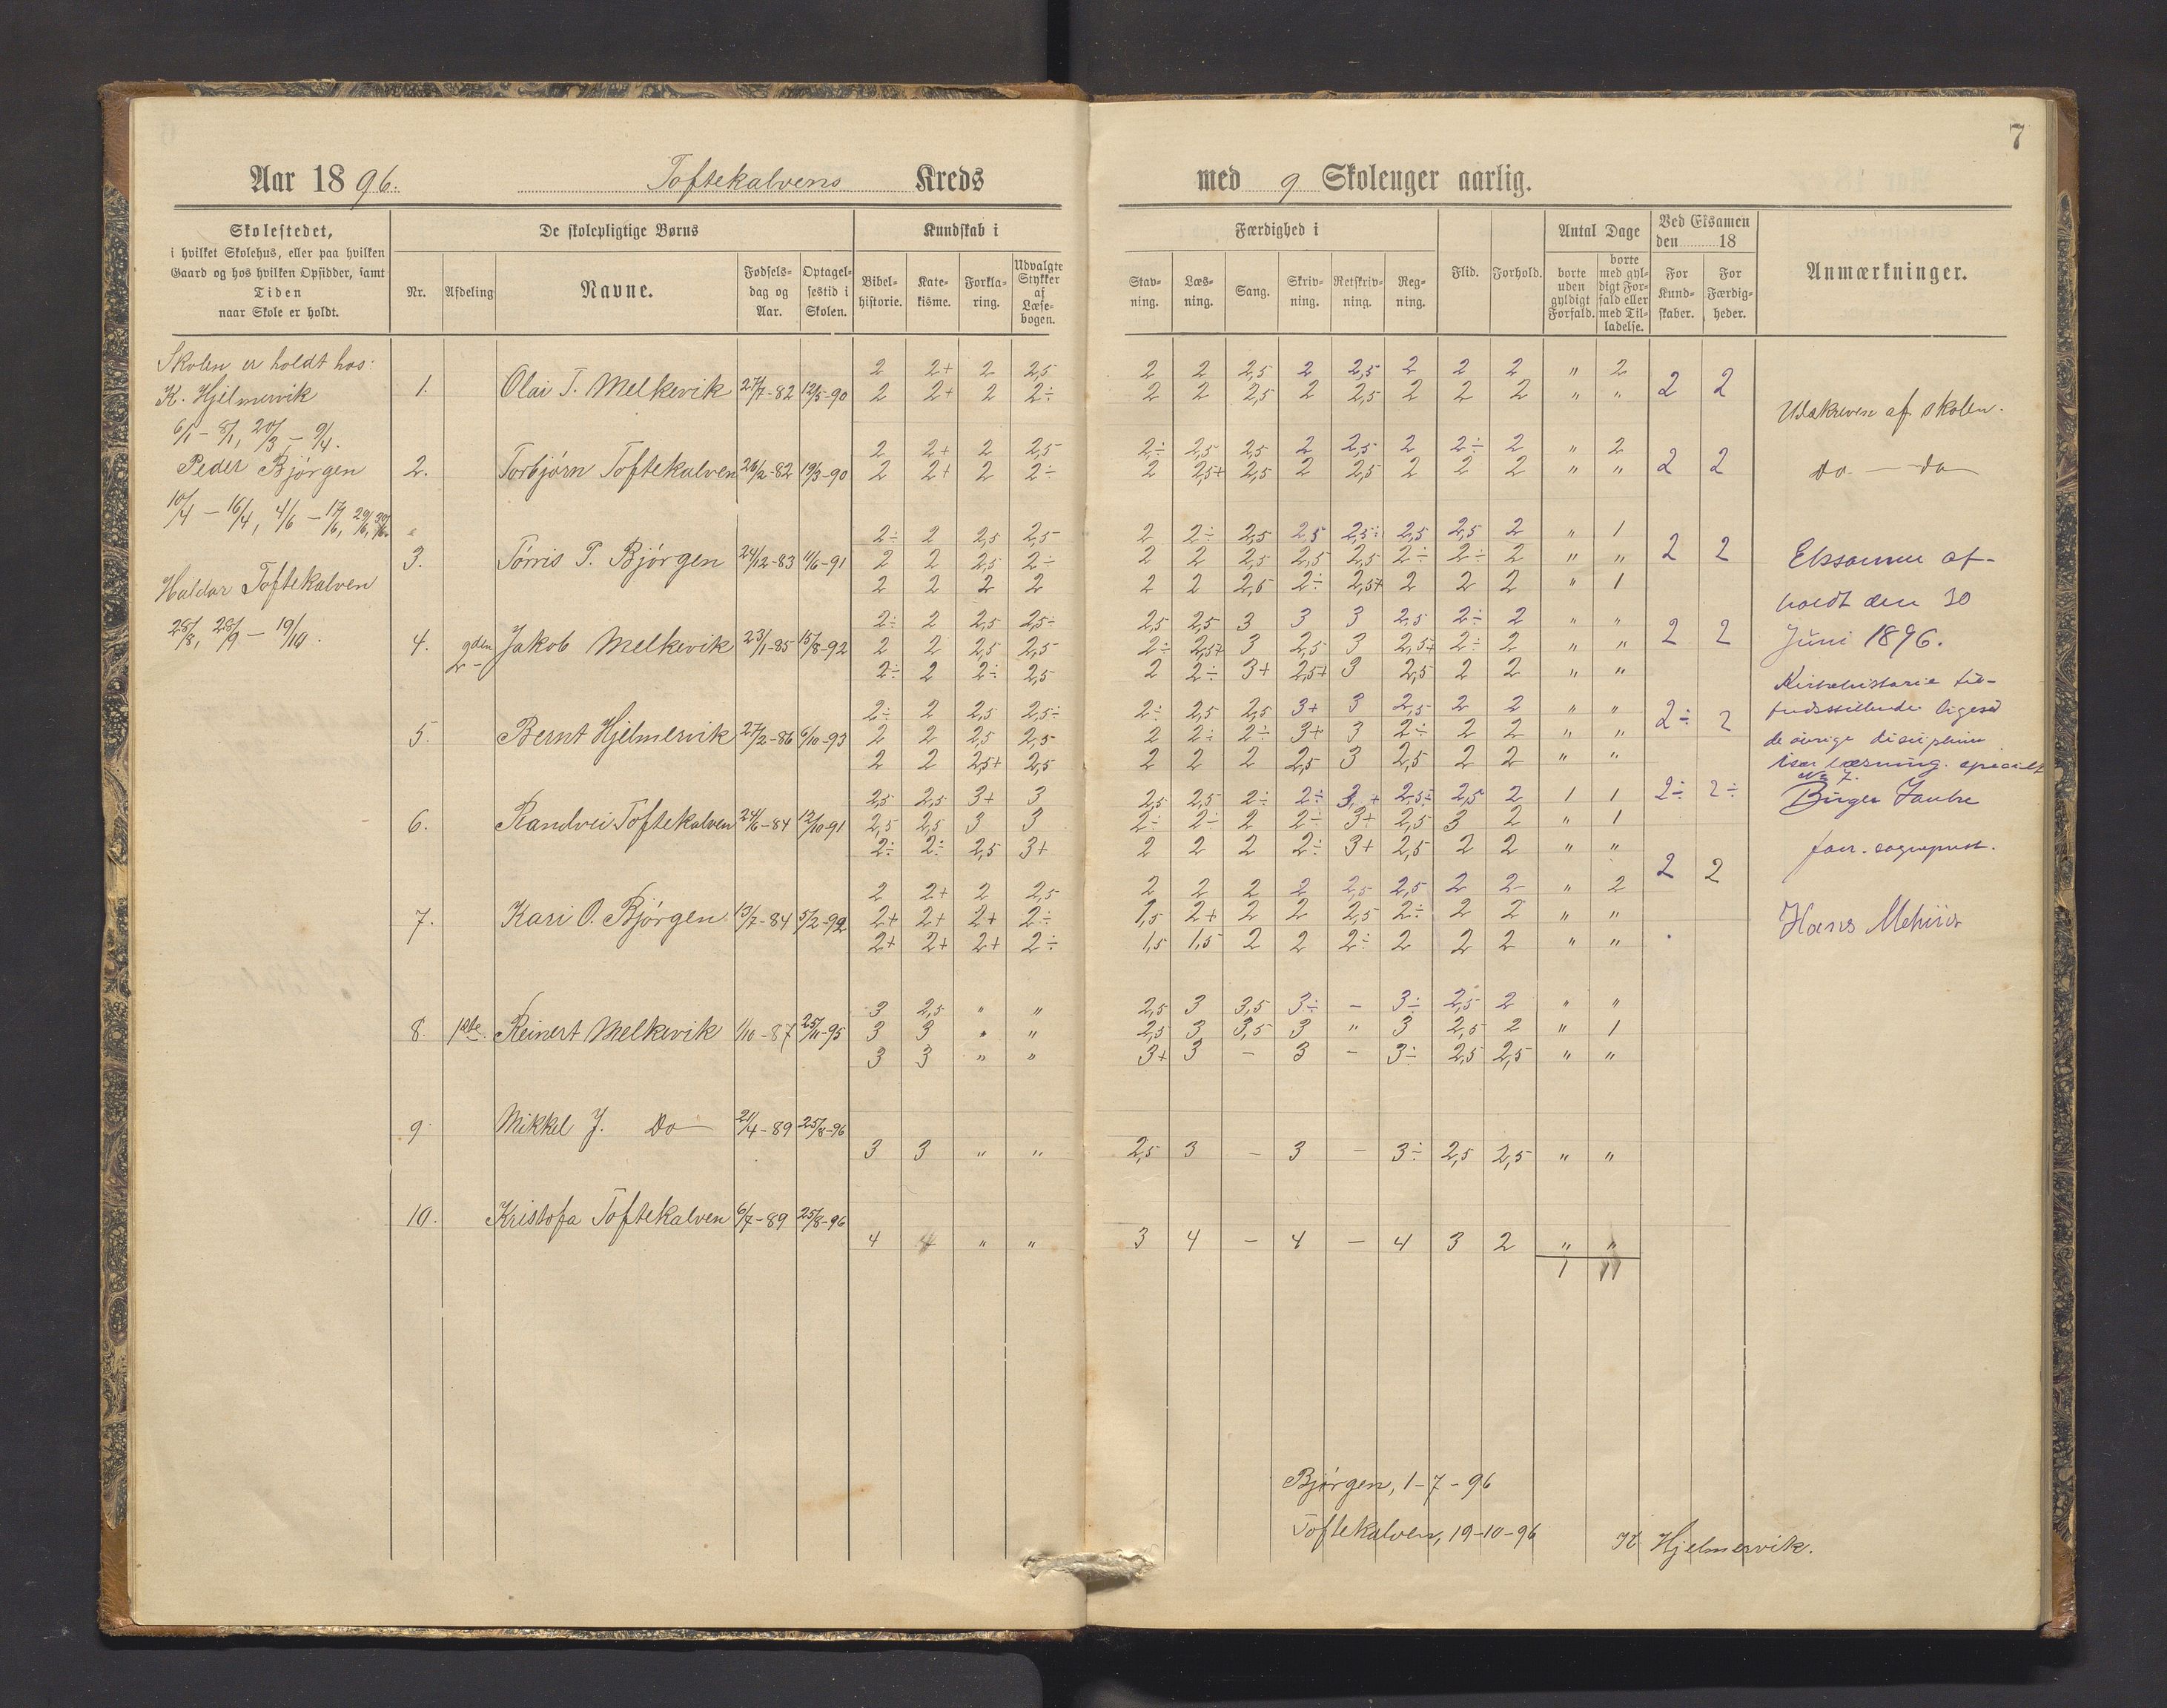 7
Aar 1896. Toftekalvens Kreds med 9 Skoleuger aarlig.
Skolestedet,
i hvilket Skolehus, eller paa hvilken
Gaard og hos hvilken Opsidder, samt
Tiden
naar Skole er holdt.
De skolepligtige Børns
Nr. Afdeling Navne. Fødselsdag og Aar. Optagelsestid i Skolen.
Kundskab i
Bibelhistorie. Katekisme. Forklaring. Udvalgte Stykker af Læsebogen.
Færdighed i
Stavning. Læsning. Sang. Skrivning. Retskrivning. Regning. Flid. Forhold.
Antal Dage
borte uden gyldigt Forfald. borte med gyldigt Forfald eller med Tilladelse.
Ved Eksamen den 18
For Kundskaber. For Færdigheder.
Anmærkninger.
Skolen er holdt hos
K. Hjelmervik
6/1 – 8/1, 20/3 – 9/4.
Peder Bjørgen
10/4 – 16/4, 4/6 – 17/6, 29/6, 30/6.
Haldor Toftekalven
25/8, 28/9 – 19/10.
2 2+ 2 2,5 2 2 2,5 2 2,5 2 2 2 " 2
1. Olai T. Melkevik 27/7-82 12/5-90 2 2+ 2 2÷ 2 2 2,5 2 2,5 2 2 2 " " 2 2
Udskreven af skolen.
2 2+ 2 2,5 2÷ 2,5 2,5 2 2,5 2 2÷ 2 " 2
2. Torbjørn Toftekalven 26/2-82 19/3-90 2 2+ 2 2÷ 2 2,5+ 2,5 2 2,5 2 2 2 " " 2 2 do — do
2÷ 2 2,5 2,5 2 2÷ 2,5 2,5 2,5÷ 2,5 2,5 2 " 1
3. Tørris P. Bjørgen 24/12-83 11/6-91 2 2 2,5 2÷ 2 2 2,5 2,5 2,5 2÷ 2÷ 2 " " 2 2
2 2 2 2 2 2 2,5 2÷ 2,5+ 2 2 2 " 1
2÷ 2 2,5 2,5÷ 2,5 2,5 3 3 3 2,5 2÷ 2 " "
4. Jakob Melkevik 23/1-85 15/8-92 2 2 2,5 2,5 2÷ 2,5+ 3 2,5 3 2,5+ 2÷ 2 " " 2 2
2÷ 2 2÷ 2,5 2 2÷ 3+ 2,5+ 3 2,5 2 2 " "
2÷ 2 2,5 2,5÷ 2÷ 2,5 2,5 3+ 3 2,5 2 2 " "
5. Bernt Hjelmervik 27/2-86 6/10-93 2 2 2,5 2,5 2 2÷ 2÷ 3+ 3 2÷ 2 2 " " 2÷ 2
2 2 2,5+ 2,5 2 2 2 2,5 3 2,5 2 2 " "
2,5 2,5 3+ 3 2,5 2,5 2÷ 2÷ 3+ 2,5÷ 2,5 2 1 1 2÷ 2÷
6. Randvei Toftekalven 24/6-84 12/10-91 2,5 2,5 3 3 2÷ 2÷ 2 2÷ 3+ 2,5 3 2 " 1
2÷ 2÷ 2,5 3+ 2 2 2 2÷ 3+ 2,5 2 2 " "
2 2+ 2 2,5 2 2 2 2 2,5 2,5 2 2 " 2 2 2
7. Kari O. Bjørgen 13/7-84 5/2-92 2+ 2+ 2+ 2÷ 1,5 2+ 2 2 2,5 2÷ 2 2 " "
2+ 2+ 2+ 2÷ 1,5 1,5 2 2 2÷ 2 2 2 " "
3 2,5 " " 2,5 3 3,5 3÷ – 3÷ 2,5 2 " "
8. 1ste Reinert Melkevik 1/10-87 25/11-95 3 3 " " 2,5 3 3,5 3 " 3 2,5 2 " 1
3 3 " " 3+ 3 – 3 – 3÷ 2,5 2,5 " "
9. Mikkel J. Do 21/4-89 25/8-96
3 3 " " 2,5 3 – 3 – 3÷ 2,5 2,5 " "
10. Kristofa Toftekalven 6/7-89 25/8-96
4 4 " " 3 4 – 4 – 4 3 2 " "
1 11
Eksamen af-
holdt den 30
Juni 1896.
Kirkehistorie til-
fredsstillende ligesaa
de øvrige discipliner
især læsning. specielt
No 7.
Hans
Bjørgen, 1-7-96
Toftekalven, 19-10-96 K. Hjelmervik.